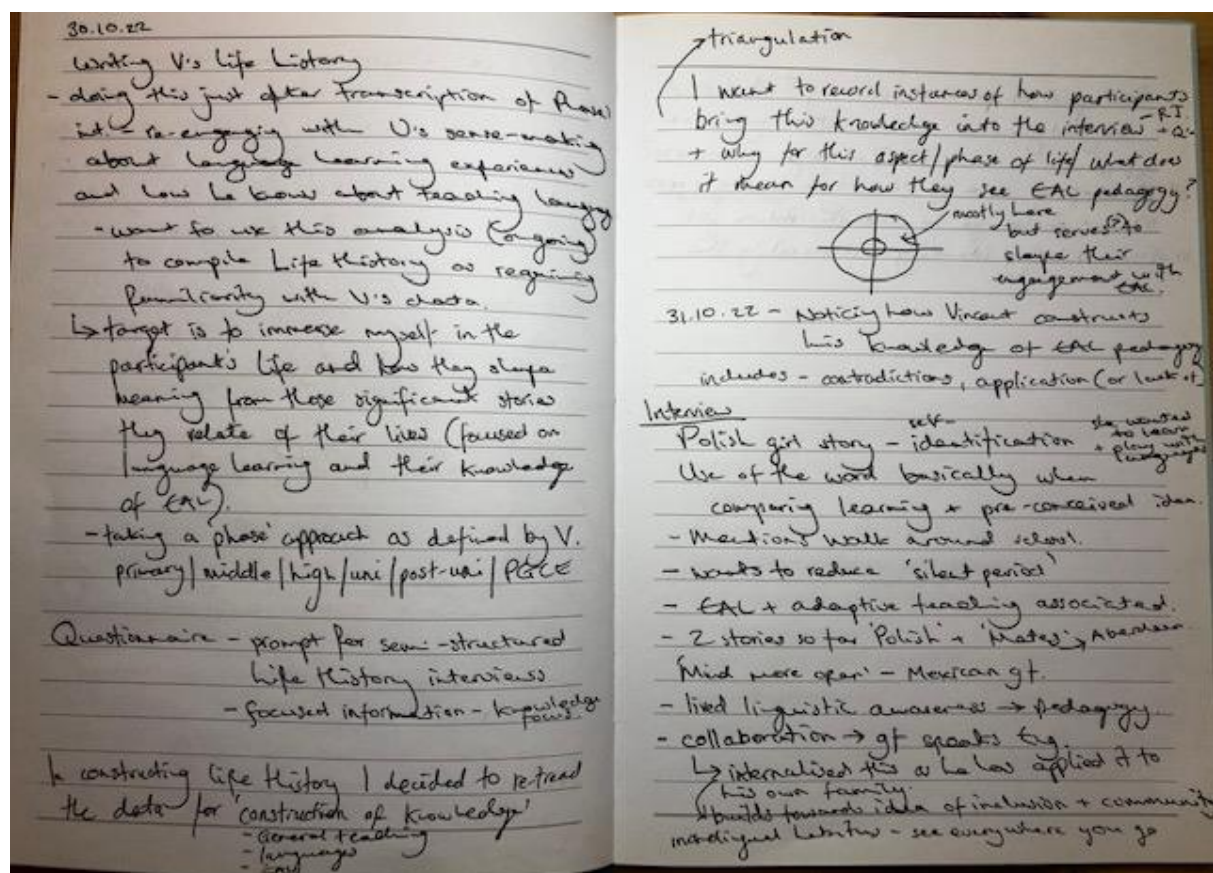 30.10.22
Writing V's Life History
- doing this just after Transcription of Phase 1
int - re-engaging with V's sense-making
about language learning experiences
and how he knows about teaching langs
- want to use this analysis (ongoing)
to compile Life History as requiring
familiarity with V's data.
↳ target is to immerse myself in the
participant's life and how they shape
meaning from those significant stories
they relate of their lives (focused on
language learning and their knowledge
of EAL).
- taking a 'phase' approach as defined by V.
primary/middle/high/uni/post-uni/PGCE
Questionnaire - prompt for semi-structured
Life History interviews
- focused information - knowledge
focus.
In constructing Life History I decided to re-read
the data for 'construction of knowledge'
- General teaching
- languages
- EAL
triangulation
I want to record instances of how participants
bring this knowledge into the interview - RI + Q're
+ why for this aspect/phase of life/what does
it mean for how they see EAL pedagogy?
mostly here
but serves(?) to
shape their
engagement with
EAL.
31.10.22 - Noticing how Vincent constructs
his knowledge of EAL pedagogy
includes - contradictions, application (or lack of)
Interview
Polish girl story - self-identification she wanted
to learn
+ play with
languages
Use of the word basically when
comparing learning + pre-conceived idea.
- Mentions walk around school.
- wants to reduce 'silent period'
- EAL + adaptive teaching associated.
- 2 stories so far 'Polish' + 'Mates' → Aberdeen
'Mind more open' - Mexican gf.
- lived linguistic awareness → pedagogy.
- collaboration → gf speaks Eng.
↳ internalised this as he has applied it to
his own family.
builds towards idea of inclusion + community
monolingual habitus - see everywhere you go